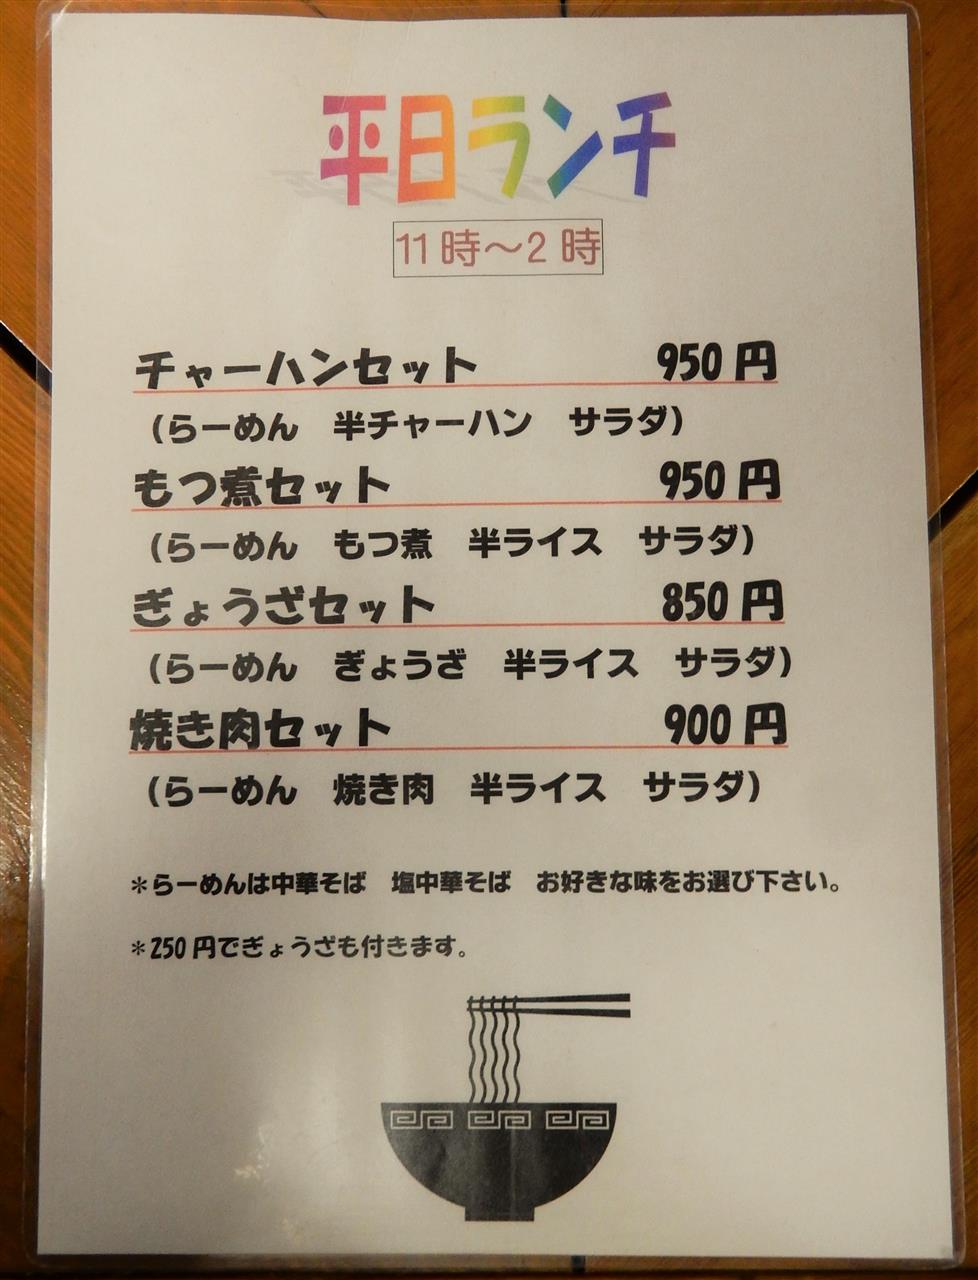 平日ランチ
11時～2時
チャーハンセット 950円
（らーめん 半チャーハン サラダ）
もつ煮セット 950円
（らーめん もつ煮 半ライス サラダ）
ぎょうざセット 850円
（らーめん ぎょうざ 半ライス サラダ）
焼き肉セット 900円
（らーめん 焼き肉 半ライス サラダ）
＊らーめんは中華そば 塩中華そば お好きな味をお選び下さい。
＊250円でぎょうざも付きます。